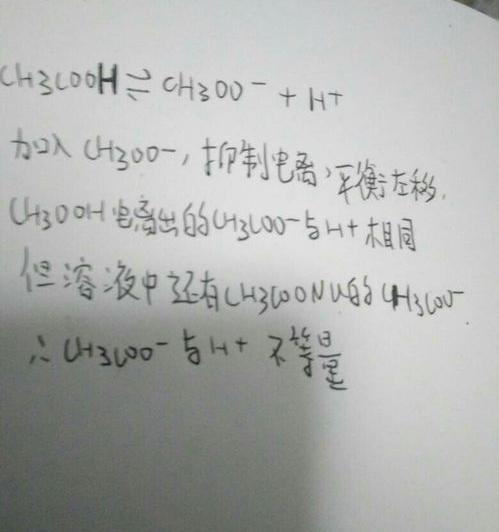 CH3COOH⇌CH3OO⁻+H+
加入CH3OO-,抑制电离,平衡左移.
CH3OOH电离出的CH3COO-与H+相同
但溶液中还有CH3COONa的CH3COO-
∴CH3COO-与H+不等量